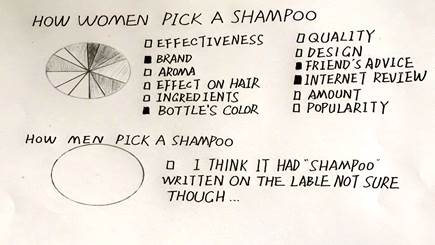 HOW WOMEN PICK A SHAMPOO
EFFECTIVENESS
BRAND
AROMA
EFFECT ON HAIR
INGREDIENTS
BOTTLE'S COLOR
QUALITY
DESIGN
FRIEND'S ADVICE
INTERNET REVIEW
AMOUNT
POPULARITY
HOW MEN PICK A SHAMPOO
I THINK IT HAD "SHAMPOO"
WRITTEN ON THE LABLE NOT SURE
THOUGH ...